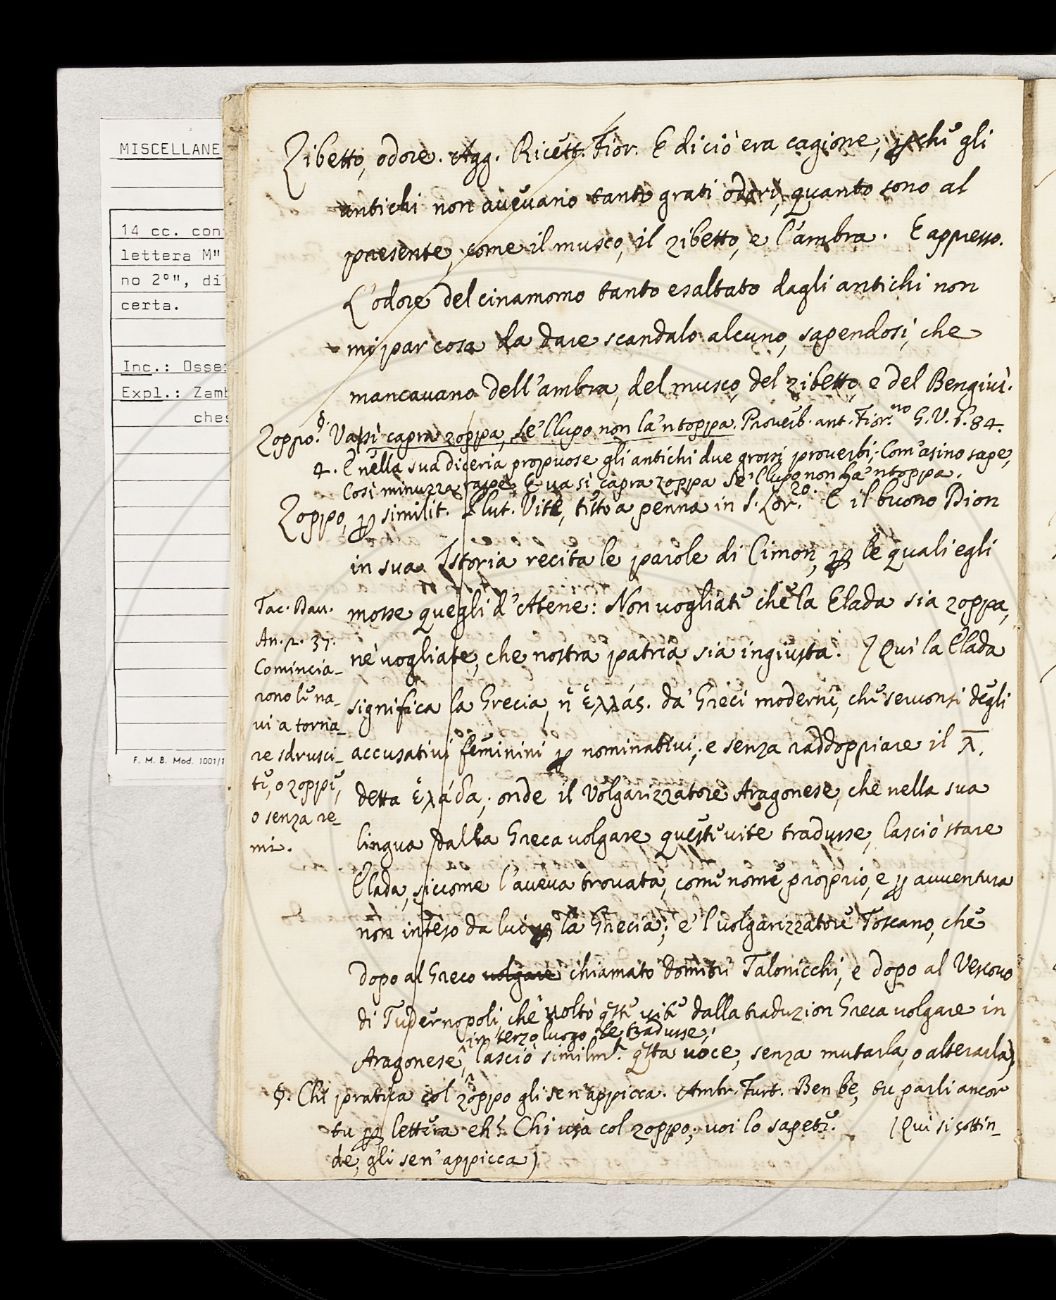 MISCELLANE
14 cc. con
lettera M"
no 2°", di
certa.
Inc.: Osse
Expl.: Zamb
ches
F. M. B. Mod. 1001/1
Zibetto, odore. Agg. Ricett. Fior. E di ciò era cagione, ꝑchè gli
antichi non avevano tanto grati odori, quanto sono al
presente, come il musco, il zibetto, e l'ambra. E appresso.
L'odore del cinamomo tanto esaltato dagli antichi non
mi par cosa da dare scandalo alcuno, sapendosi, che
mancavano dell'ambra, del musco, del zibetto, e del Bengiuì.
Zoppo. Vassi capra zoppa, se 'l lupo non la 'ntoppa. Proverb. ant. Fior.no G. V. 1. 84.
4. E nella sua diceria propuose gli antichi due grossi proverbi, Com' asino sape,
Così minuzza rape. E va si capra zoppa Se 'l lupo non la 'ntoppa.
Zoppo, ꝑ similit. Plut. Vite, testo a penna in S. Lor.zo E il buono Dion
in sua Istoria recita le parole di Cimon, ꝑ le quali egli
mosse quegli d'Atene: Non vogliate che la Elada sia zoppa,
nè vogliate, che nostra patria sia ingiusta. (Qui la Elada
significa la Grecia, ἡ ἑλλάς. da' Greci moderni, che servonsi degli
accusativi feminini ꝑ nominativi, e senza raddoppiare il λ,
detta ἑλάδα; onde il Volgarizzatore Aragonese, che nella sua
lingua dalla Greca volgare queste vite tradusse, lasciò stare
Elada, siccome l'aveva trovata, come nome proprio, e ꝑ avventura
non inteso da lui ꝑ la Grecia; e 'l volgarizzatore Toscano, che
dopo al Greco volgare chiamato Domitri Talonicchi, e dopo al Vescovo
di Tudernopoli, che voltò qste vite dalla traduzion Greca volgare in
in terzo luogo le tradusse,
Aragonese, lasciò similmte qsta voce, senza mutarla, o alterarla)
§. Chi pratica col zoppo gli sen'appicca. Ambr. Furt. Ben be, tu parli ancor
tu ꝑ lettera eh? Chi usa col zoppo, voi lo sapete. (Qui si sottin-
de, gli sen'appicca)
Tac. Dav.
An. 2. 37.
Comincia-
rono le na-
vi a torna-
re sdrusci-
te, o zoppe,
o senza re-
mi.